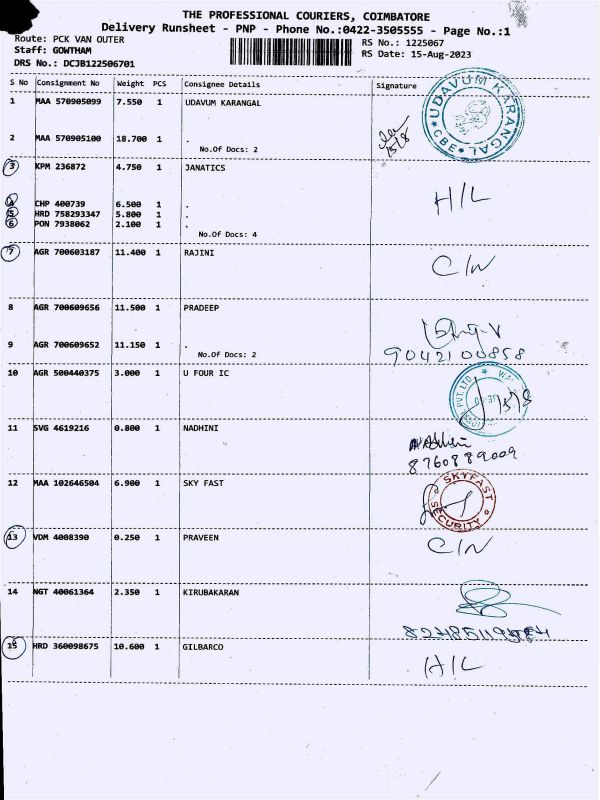 THE PROFESSIONAL COURIERS, COIMBATORE
Delivery Runsheet - PNP - Phone No.:0422-3505555 - Page No.:1
Route: PCK VAN OUTER
RS No.: 1225067
Staff: GOWTHAM
RS Date: 15-Aug-2023
DRS No.: DCJB122506701
S No Consignment No Weight PCS Consignee Details Signature
1 MAA 570905099 7.550 1 UDAVUM KARANGAL
UDAVUM KARANGAL
* CBE *
2 MAA 570905100 18.700 1 .
15/8
No.Of Docs: 2
3 KPM 236872 4.750 1 JANATICS
H/L
4 CHP 400739 6.500 1 .
5 HRD 758293347 5.800 1 .
6 PON 7938062 2.100 1 .
No.Of Docs: 4
7 AGR 700603187 11.400 1 RAJINI
C/N
8 AGR 700609656 11.500 1 PRADEEP
9 AGR 700609652 11.150 1 .
No.Of Docs: 2
9042100858
10 AGR 500440375 3.000 1 U FOUR IC
PVT. LTD
15/8
11 SVG 4619216 0.800 1 NADHINI
8760889009
12 MAA 102646504 6.900 1 SKY FAST
SKYFAST
SECURITY
13 VDM 4008390 0.250 1 PRAVEEN
C/N
14 NGT 40061364 2.350 1 KIRUBAKARAN
15 HRD 360098675 10.600 1 GILBARCO
H/L